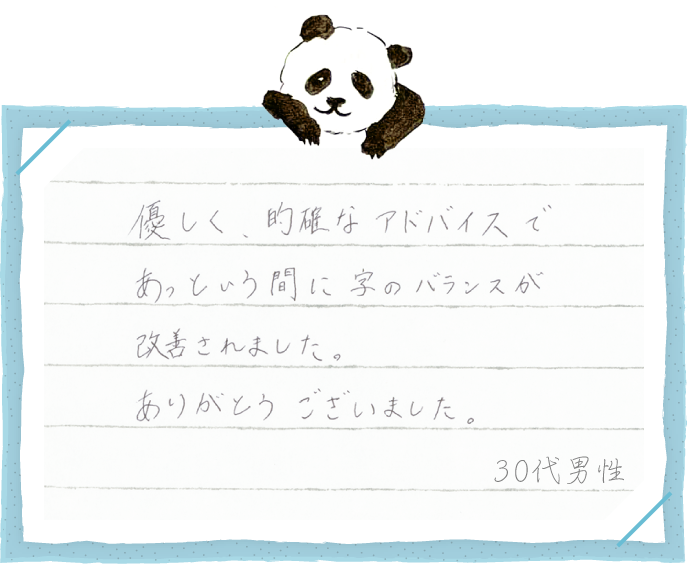 優しく、的確なアドバイスで
あっという間に字のバランスが
改善されました。
ありがとうございました。
30代男性